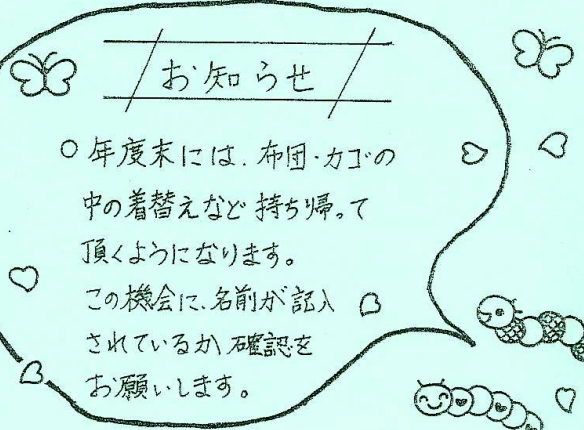 お知らせ
○年度末には、布団・カゴの
中の着替えなど持ち帰って
頂くようになります。
この機会に、名前が記入
されているか、確認を
お願いします。